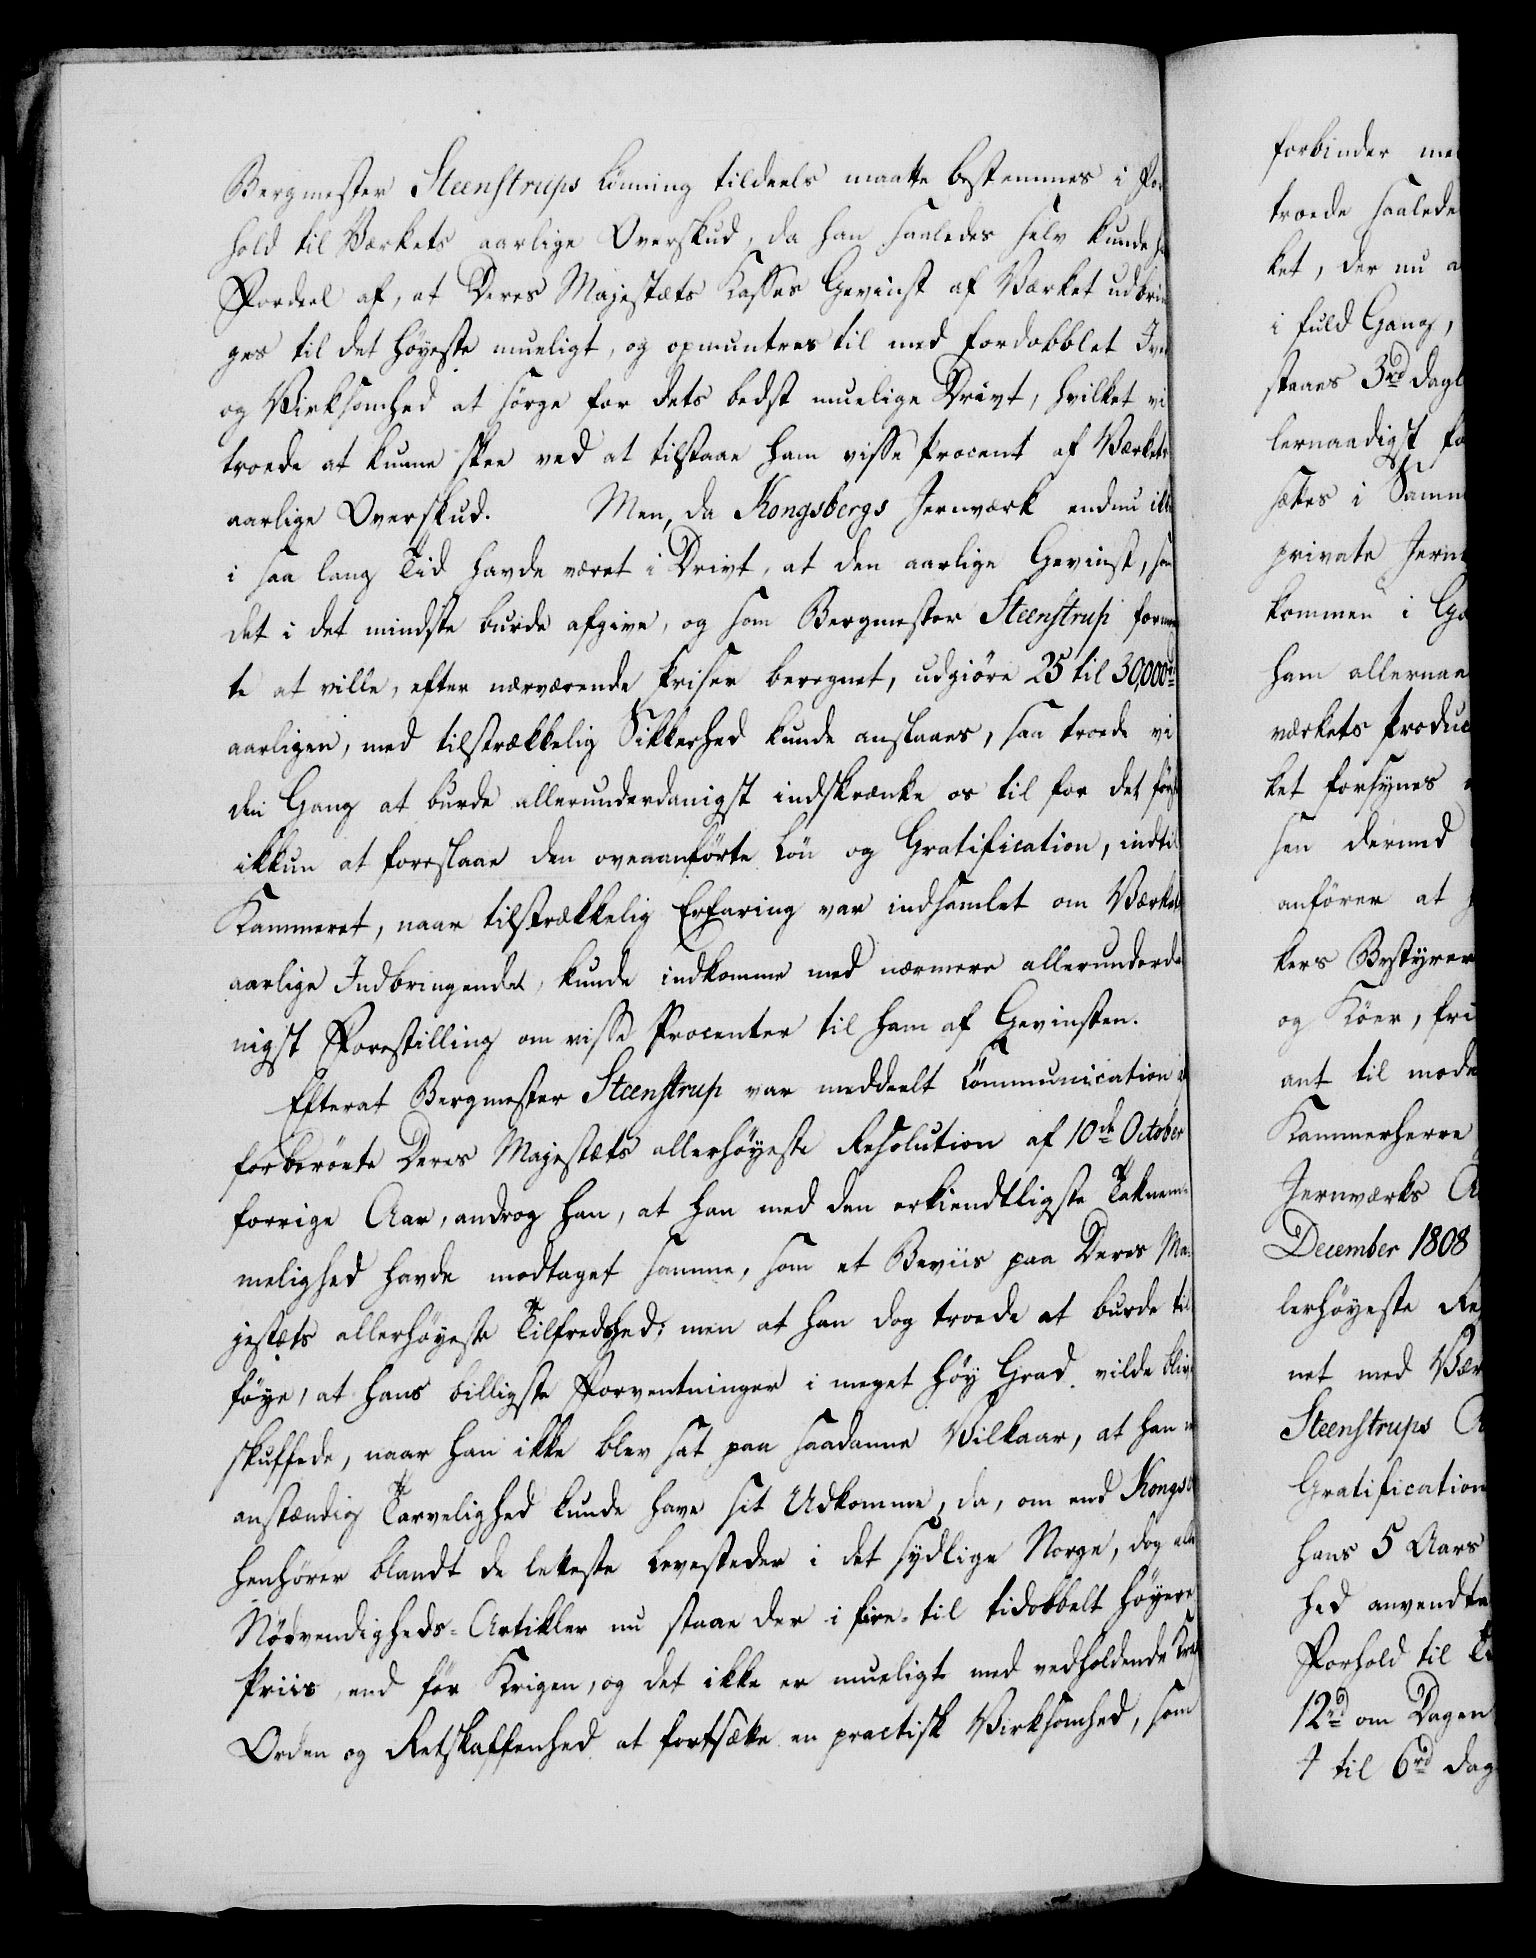 Bergmester Steenstrups Lönning tildeels maatte bestemmes i For
hold til Værkets aarlige Overskud, da han saaledes selv kunde ha
Fordeel af, at Deres Majestæts Kasses Gevinst af Værket udbrin
ges til det höyeste mueligt, og opmuntres til med fordobblet Iver
og Virksomhed at sörge for dets bedst muelige Drivt, hvilket vi
troede at kunne skee ved at tilstaae ham visse Procent af Værkets
aarlige Overskud. Men, da Kongsbergs Jernværk endnu ikke
i saa lang Tid havde været i Drivt, at den aarlige Gevinst, som
det i det mindste burde afgive, og som Bergmester Steenstrup formeen
te at ville, efter nærværende Priser beregnet, udgiöre 25 til 30,000 rd
aarligen, med tilstrækkelig Sikkerhed kunde anslaaes, saa troede vi
den Gang at burde allerunderdanigst indskrænke os til for det förste
ikkun at foreslaae den ovenanförte Lön og Gratification, indtil
Kammeret, naar tilstrækkelig Erfaring var indsamlet om Værkets
aarlige Indbringende, kunde indkomme med nærmere allerunderda
nigst Forestilling om visse Procenter til ham af Gevinsten.
Efterat Bergmester Steenstrup var meddeelt Communication af
forberörte Deres Majestæts allerhöyeste Resolution af 10de October
forrige Aar, androg han, at han med den erkiendtligste Taknem-
melighed havde modtaget samme, som et Beviis paa Deres Ma-
jestæts allerhöyeste Tilfredshed; men at han dog troede at burde til
föye, at hans billigste Forventninger i meget höy Grad vilde blive
skuffede, naar han ikke blev sat paa saadanne Vilkaar, at han
anstændig Tarvelighed kunde have sit Udkomme, da, om end Kongsb
henhörer blandt de letteste Levesteder i det sydlige Norge, dog alle
Nödvendigheds-Artikler nu staae der i fire- til tidobbelt höyere
Priis, end för Krigen, og det ikke er mueligt med vedholdende Kraft
Orden og Retskaffenhed at fortsætte en practisk Virksomhed, som
forbinder me
troede saalede
ket, der nu a
i fuld Gang,
staaes 3 rd dagl
lernaadigst fo
sættes i Samm
private Jern
kommen i Ga
ham allernaa
værkets Produc
ket forsynes
sen derved
anförer at
kers Bestyrer
og Köer, fri
ant til mode
Kammerherre
Jernværks A
December 1808
lerhöyeste Re
net med Vær
Steenstrups
Gratification
hans 5 Aars
hed anvendte
Forhold til
12 rd om Dagen
4 til 6 rd dag